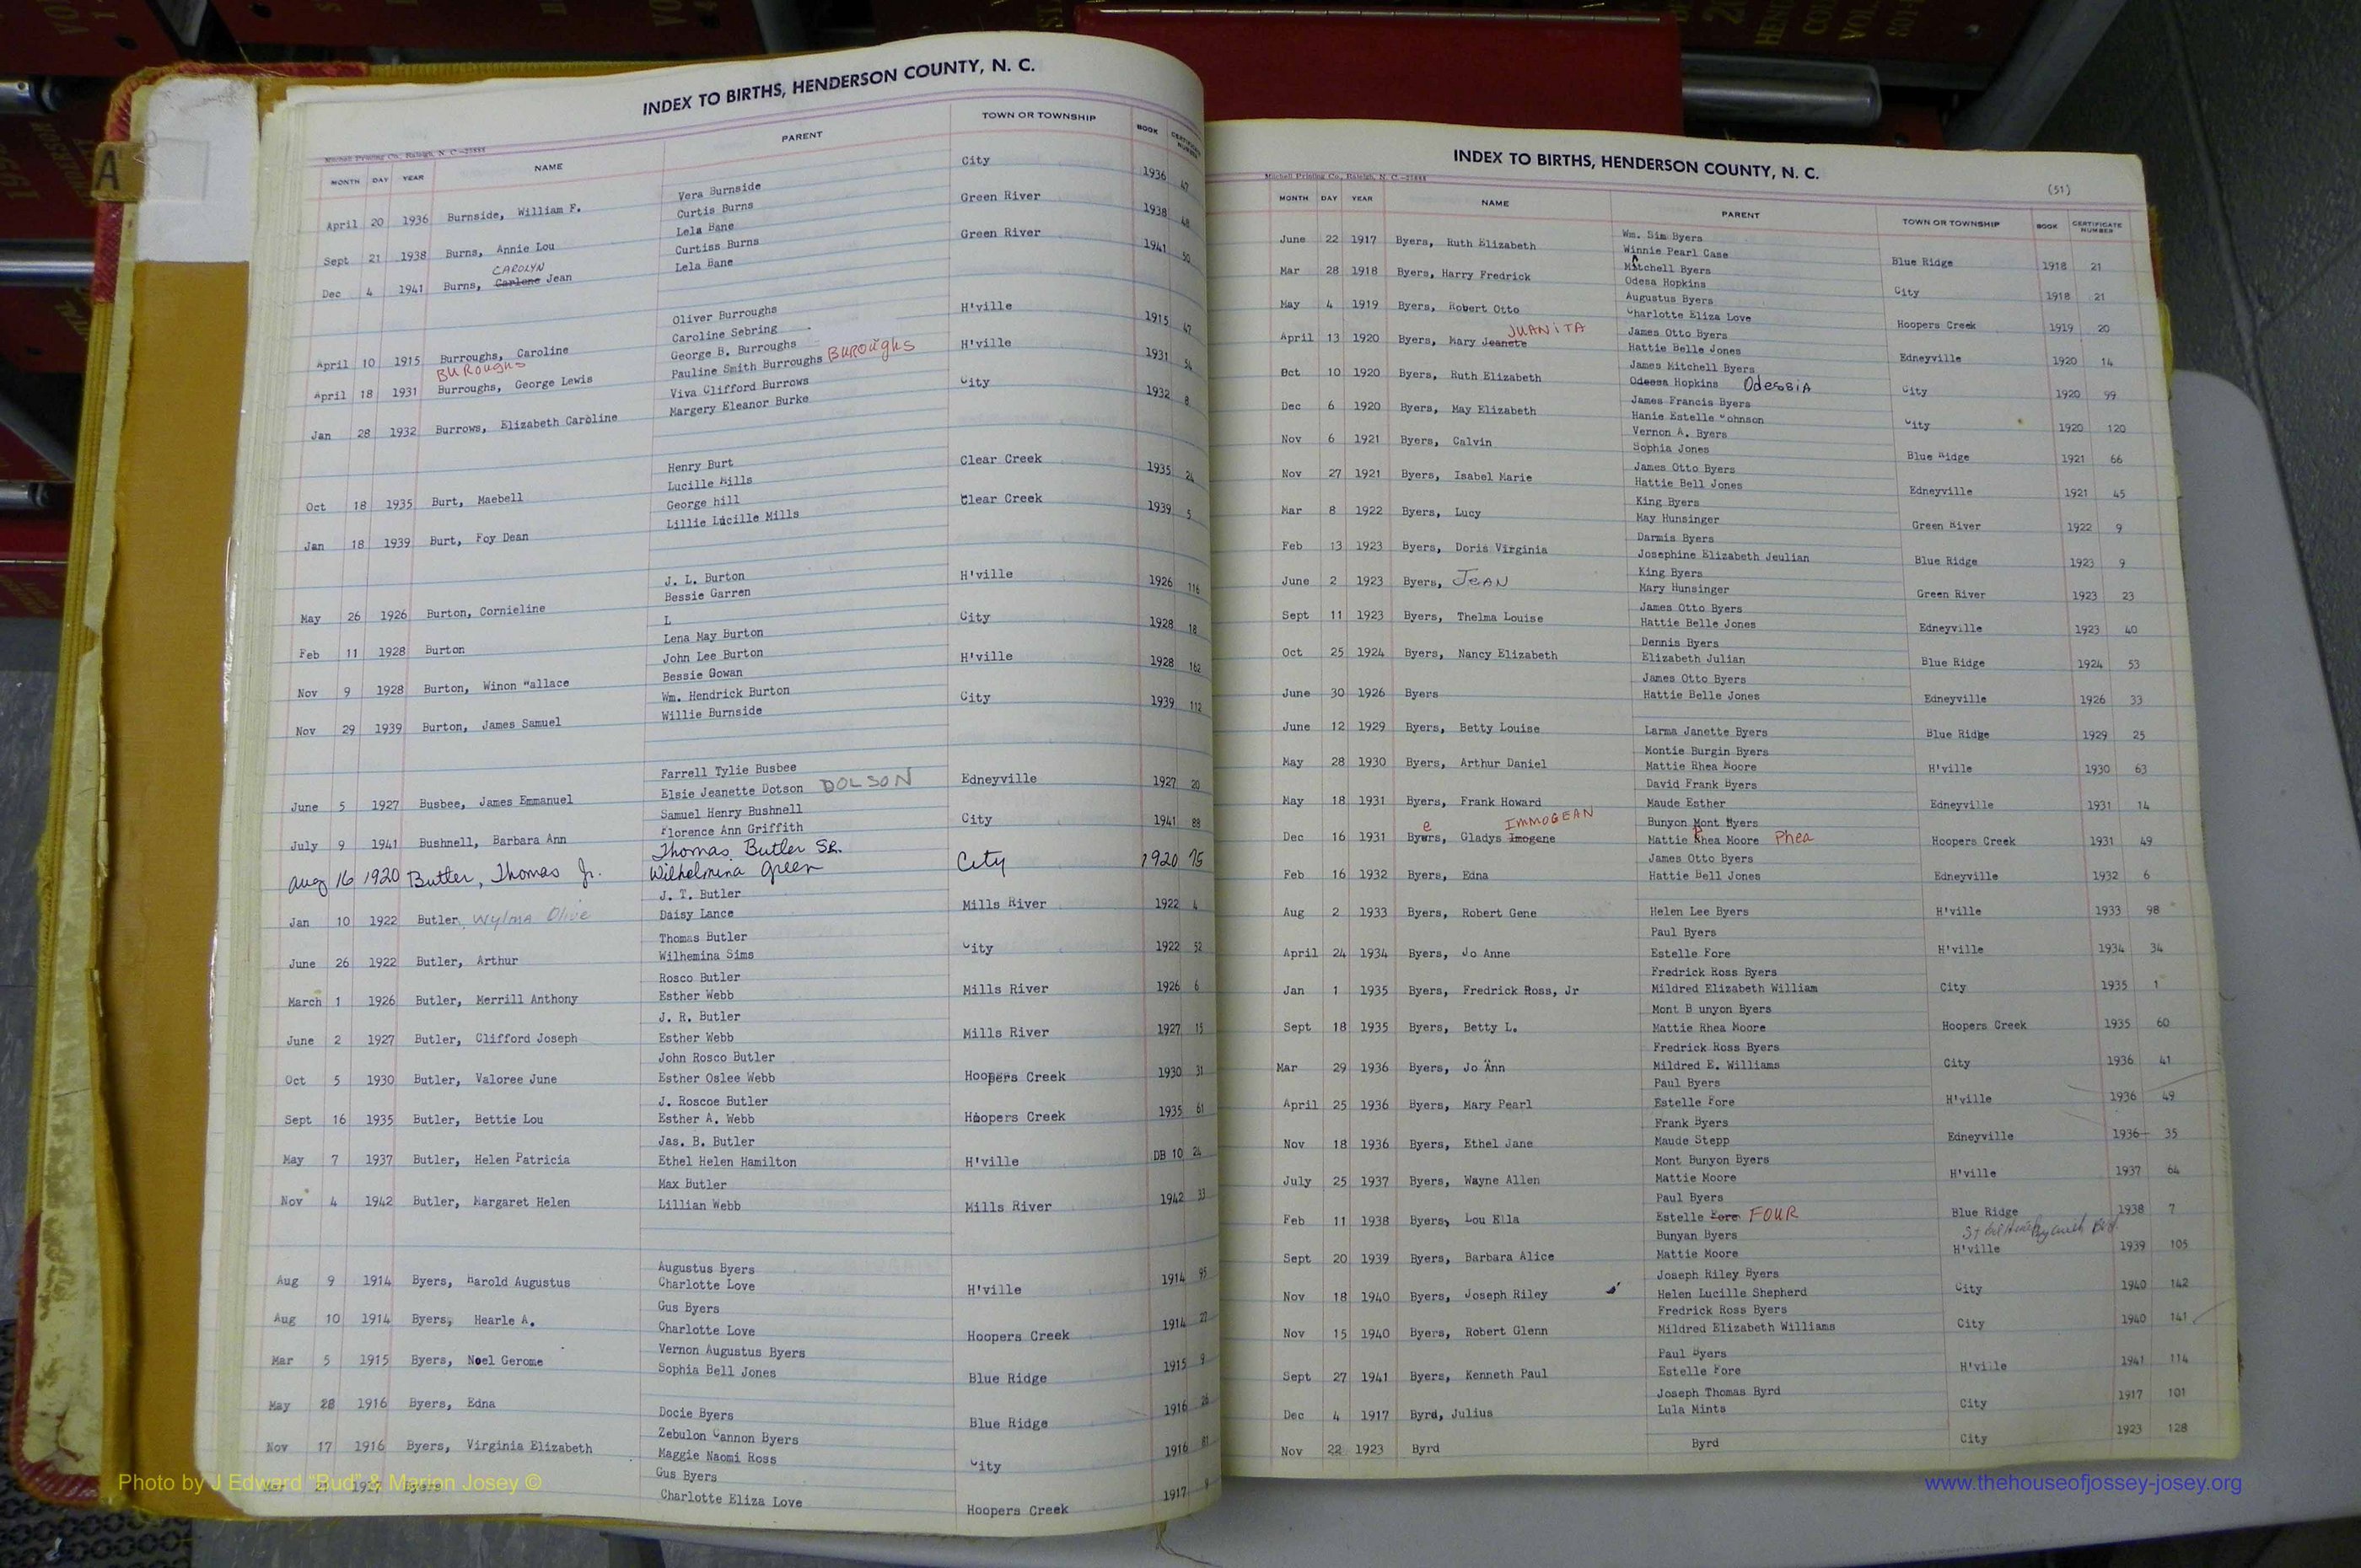 INDEX TO BIRTHS, HENDERSON COUNTY, N. C.
Mitchell Printing Co., Raleigh, N. C.
MONTH DAY YEAR NAME PARENT TOWN OR TOWNSHIP BOOK CERTIFICATE NUMBER
Vera Burnside
April 20 1936 Burnside, William F. City 1936 47
Curtis Burns
Sept 21 1938 Burns, Annie Lou Lela Bane Green River 1938 48
CAROLYN Curtiss Burns
Dec 4 1941 Burns, Carlene Jean Lela Bane Green River 1941 50
Oliver Burroughs
April 10 1915 Burroughs, Caroline Caroline Sebring H'ville 1915 47
BURoughs George B. Burroughs
April 18 1931 Burroughs, George Lewis Pauline Smith Burroughs BURoughs H'ville 1931 54
Viva Clifford Burrows
Jan 28 1932 Burrows, Elizabeth Caroline Margery Eleanor Burke City 1932 8
Henry Burt
Oct 18 1935 Burt, Maebell Lucille Mills Clear Creek 1935 24
George hill
Jan 18 1939 Burt, Foy Dean Lillie Lucille Mills Clear Creek 1939 5
J. L. Burton
May 26 1926 Burton, Cornieline Bessie Garren H'ville 1926 116
L
Feb 11 1928 Burton Lena May Burton City 1928 18
John Lee Burton
Nov 9 1928 Burton, Winon "allace Bessie Gowan H'ville 1928 162
Wm. Hendrick Burton
Nov 29 1939 Burton, James Samuel Willie Burnside City 1939 112
Farrell Tylie Busbee
June 5 1927 Busbee, James Emmanuel Elsie Jeanette Dotson DOLSON Edneyville 1927 20
Samuel Henry Bushnell
July 9 1941 Bushnell, Barbara Ann Florence Ann Griffith City 1941 88
Thomas Butler SR.
Aug 16 1920 Butler, Thomas Jr. Wilhelmina Green City 1920 75
J. T. Butler
Jan 10 1922 Butler, Wylma Olive Daisy Lance Mills River 1922 4
Thomas Butler
June 26 1922 Butler, Arthur Wilhemina Sims City 1922 52
Rosco Butler
March 1 1926 Butler, Merrill Anthony Esther Webb Mills River 1926 6
J. R. Butler
June 2 1927 Butler, Clifford Joseph Esther Webb Mills River 1927 15
John Rosco Butler
Oct 5 1930 Butler, Valoree June Esther Oslee Webb Hoopers Creek 1930 31
J. Roscoe Butler
Sept 16 1935 Butler, Bettie Lou Esther A. Webb Hoopers Creek 1935 61
Jas. B. Butler
May 7 1937 Butler, Helen Patricia Ethel Helen Hamilton H'ville DB 10 24
Max Butler
Nov 4 1942 Butler, Margaret Helen Lillian Webb Mills River 1942 33
Augustus Byers
Aug 9 1914 Byers, Harold Augustus Charlotte Love H'ville 1914 95
Gus Byers
Aug 10 1914 Byers, Hearle A. Charlotte Love Hoopers Creek 1914 27
Vernon Augustus Byers
Mar 5 1915 Byers, Noel Gerome Sophia Bell Jones Blue Ridge 1915 9
May 28 1916 Byers, Edna Docie Byers Blue Ridge 1916 26
Zebulon Cannon Byers
Nov 17 1916 Byers, Virginia Elizabeth Maggie Naomi Ross City 1916 81
Gus Byers
1917 Byers Charlotte Eliza Love Hoopers Creek 1917 9
INDEX TO BIRTHS, HENDERSON COUNTY, N. C.
Mitchell Printing Co., Raleigh, N. C.
(51)
MONTH DAY YEAR NAME PARENT TOWN OR TOWNSHIP BOOK CERTIFICATE NUMBER
Wm. Sim Byers
June 22 1917 Byers, Ruth Elizabeth Winnie Pearl Case Blue Ridge 1918 21
Mitchell Byers
Mar 28 1918 Byers, Harry Fredrick Odesa Hopkins City 1918 21
Augustus Byers
May 4 1919 Byers, Robert Otto Charlotte Eliza Love Hoopers Creek 1919 20
JUANITA James Otto Byers
April 13 1920 Byers, Mary Jeanete Hattie Belle Jones Edneyville 1920 14
James Mitchell Byers
Oct 10 1920 Byers, Ruth Elizabeth Odessa Hopkins OdessiA City 1920 99
James Francis Byers
Dec 6 1920 Byers, May Elizabeth Hanie Estelle "ohnson City 1920 120
Vernon A. Byers
Nov 6 1921 Byers, Calvin Sophia Jones Blue Ridge 1921 66
James Otto Byers
Nov 27 1921 Byers, Isabel Marie Hattie Bell Jones Edneyville 1921 45
King Byers
Mar 8 1922 Byers, Lucy May Hunsinger Green River 1922 9
Darmis Byers
Feb 13 1923 Byers, Doris Virginia Josephine Elizabeth Jeulian Blue Ridge 1923 9
King Byers
June 2 1923 Byers, JeAN Mary Hunsinger Green River 1923 23
James Otto Byers
Sept 11 1923 Byers, Thelma Louise Hattie Belle Jones Edneyville 1923 40
Dennis Byers
Oct 25 1924 Byers, Nancy Elizabeth Elizabeth Julian Blue Ridge 1924 53
James Otto Byers
June 30 1926 Byers Hattie Belle Jones Edneyville 1926 33
June 12 1929 Byers, Betty Louise Larma Janette Byers Blue Ridge 1929 25
Montie Burgin Byers
May 28 1930 Byers, Arthur Daniel Mattie Rhea Moore H'ville 1930 63
David Frank Byers
May 18 1931 Byers, Frank Howard Maude Esther Edneyville 1931 14
e IMMOGEAN Bunyon Mont Byers
Dec 16 1931 Byers, Gladys Imogene Mattie Rhea Moore Phea Hoopers Creek 1931 49
James Otto Byers
Feb 16 1932 Byers, Edna Hattie Bell Jones Edneyville 1932 6
Aug 2 1933 Byers, Robert Gene Helen Lee Byers H'ville 1933 98
Paul Byers
April 24 1934 Byers, Jo Anne Estelle Fore H'ville 1934 34
Fredrick Ross Byers
Jan 1 1935 Byers, Fredrick Ross, Jr Mildred Elizabeth William City 1935 1
Mont B unyon Byers
Sept 18 1935 Byers, Betty L. Mattie Rhea Moore Hoopers Creek 1935 60
Fredrick Ross Byers
Mar 29 1936 Byers, Jo Ann Mildred E. Williams City 1936 41
Paul Byers
April 25 1936 Byers, Mary Pearl Estelle Fore H'ville 1936 49
Frank Byers
Nov 18 1936 Byers, Ethel Jane Maude Stepp Edneyville 1936 35
Mont Bunyon Byers
July 25 1937 Byers, Wayne Allen Mattie Moore H'ville 1937 64
Paul Byers
Feb 11 1938 Byers, Lou Ella Estelle Fore FOUR Blue Ridge 1938 7
Bunyan Byers
Sept 20 1939 Byers, Barbara Alice Mattie Moore H'ville 1939 105
Joseph Riley Byers
Nov 18 1940 Byers, Joseph Riley Helen Lucille Shepherd City 1940 142
Fredrick Ross Byers
Nov 15 1940 Byers, Robert Glenn Mildred Elizabeth Williams City 1940 141
Paul Byers
Sept 27 1941 Byers, Kenneth Paul Estelle Fore H'ville 1941 114
Joseph Thomas Byrd
Dec 4 1917 Byrd, Julius Lula Mints City 1917 101
Nov 22 1923 Byrd Byrd City 1923 128
A
Photo by J Edward "Bud" & Marion Josey ©
www.thehouseofjossey-josey.org